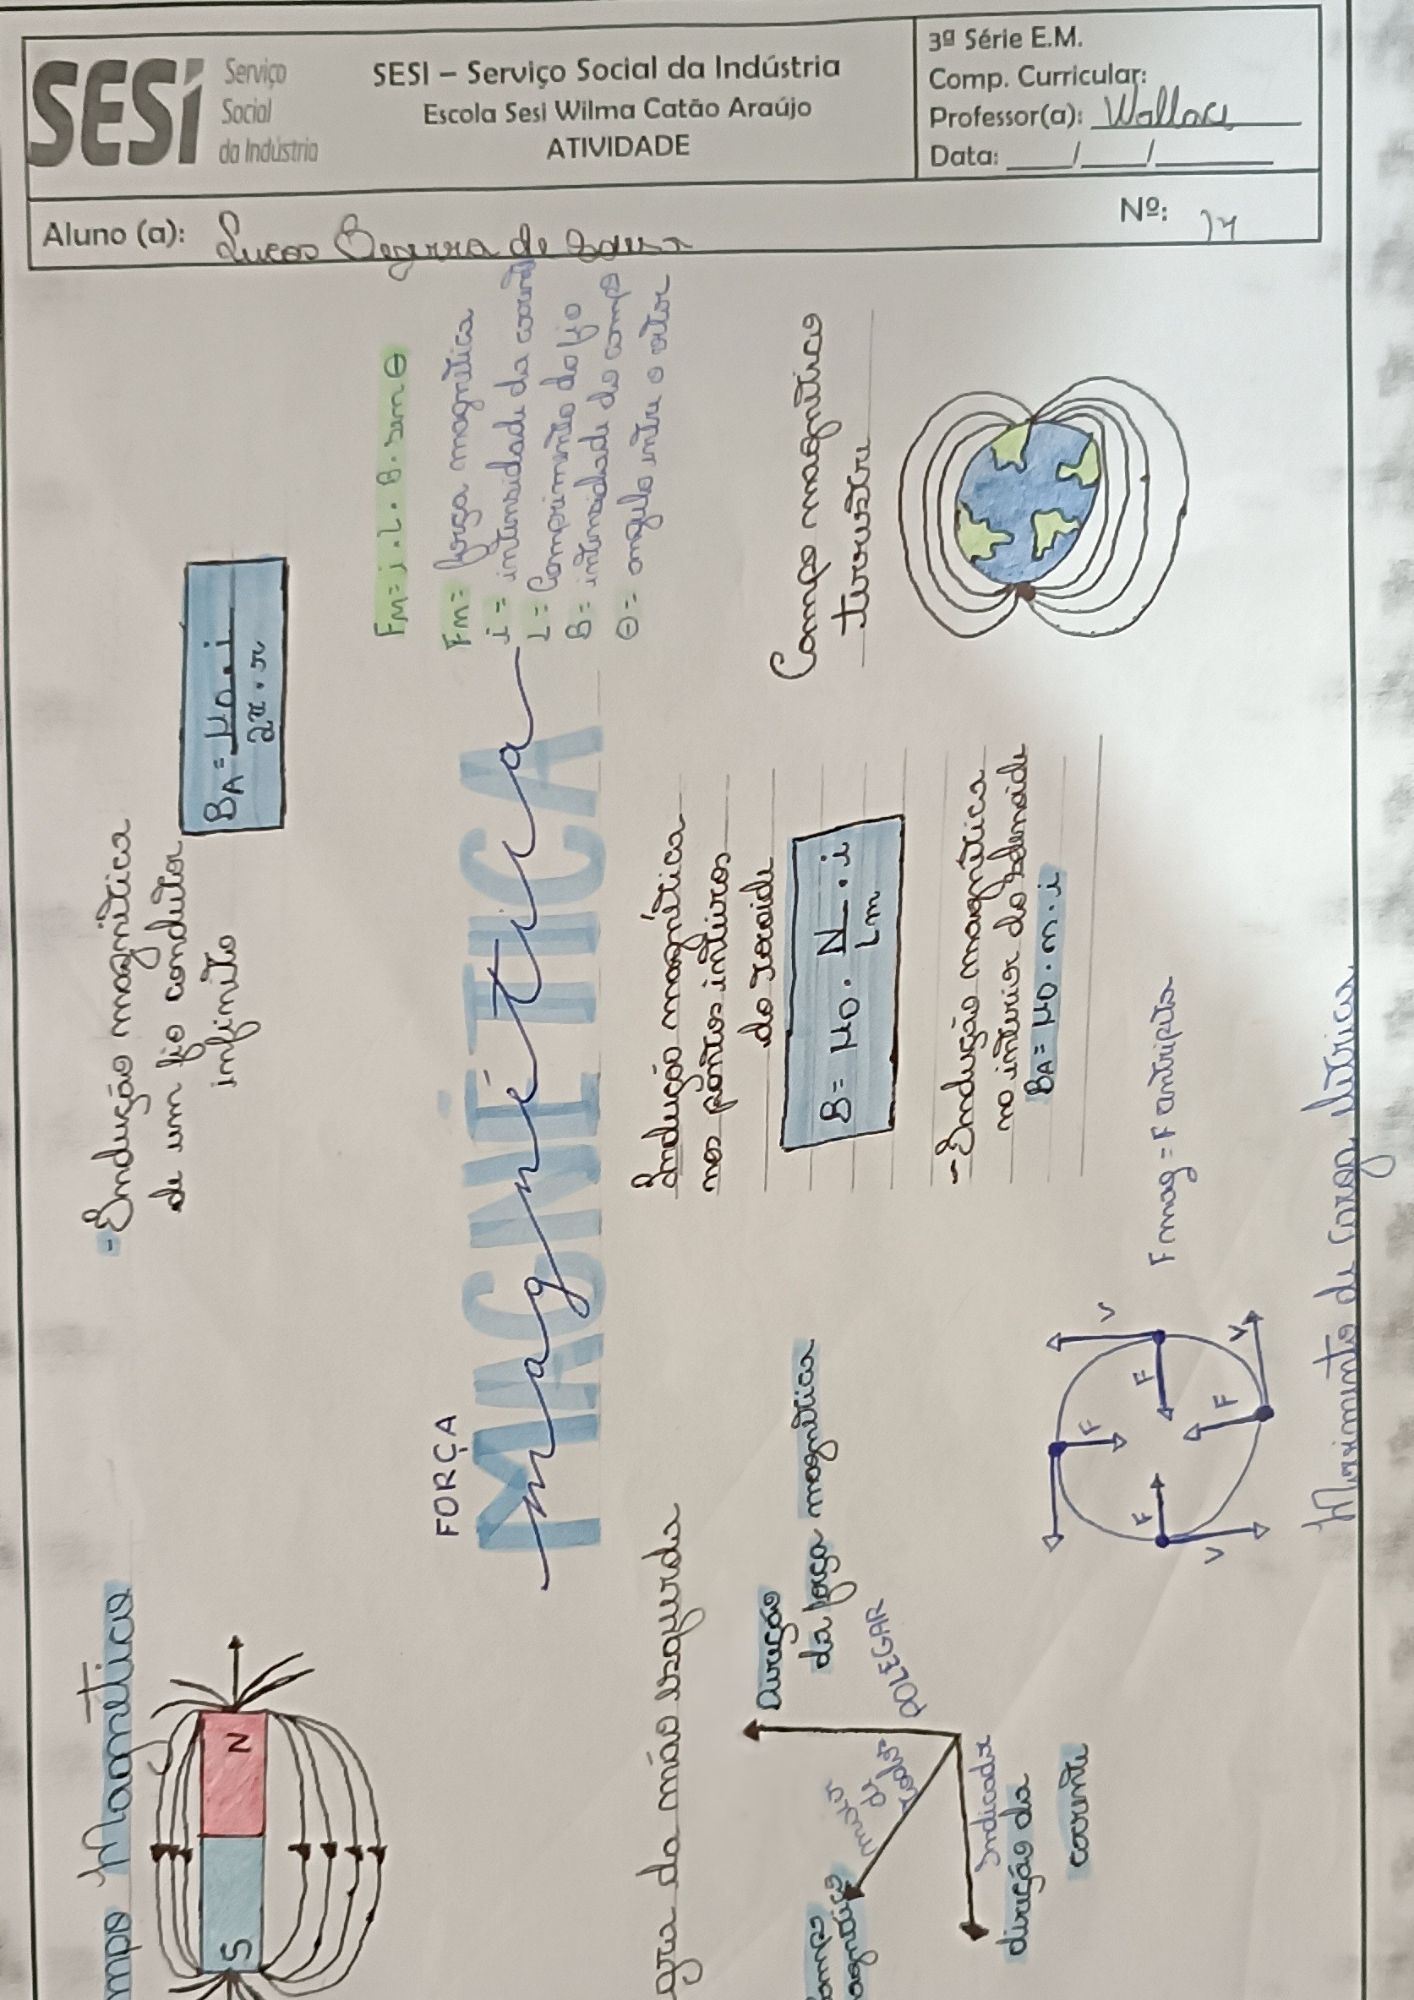 SESI
Serviço
Social
da Indústria
SESI – Serviço Social da Indústria
Escola Sesi Wilma Catão Araújo
ATIVIDADE
3ª Série E.M.
Comp. Curricular:
Professor(a): Wallace
Data: ____/____/____
Aluno (a): Lucas Bezerra de Sousa
Nº: 17
mpo Magnético
S N
- Indução magnética
de um fio condutor
infinito
BA = μ0 . i
2π . r
FORÇA
MAGNÉTICA
magnética
FM = i . L . B . sen θ
FM = força magnética
i = intensidade da corrent
L = Comprimento do fio
B = intensidade do campo
θ = angulo entre o vetor
gra da mão esquerda
Direção
da força magnética
POLEGAR
médio
de
ampo
agnético
Indicador
direção da
corrente
Indução magnética
nos pontos interos
do toroide
B = μ0 . N . i
Lm
- Indução magnética
no interior do solenoide
BA = μ0 . n . i
Campo magnético
terrestre
F mag = F centripeta
V
F
F
F
F
V
V
Movimento de carga eletrica